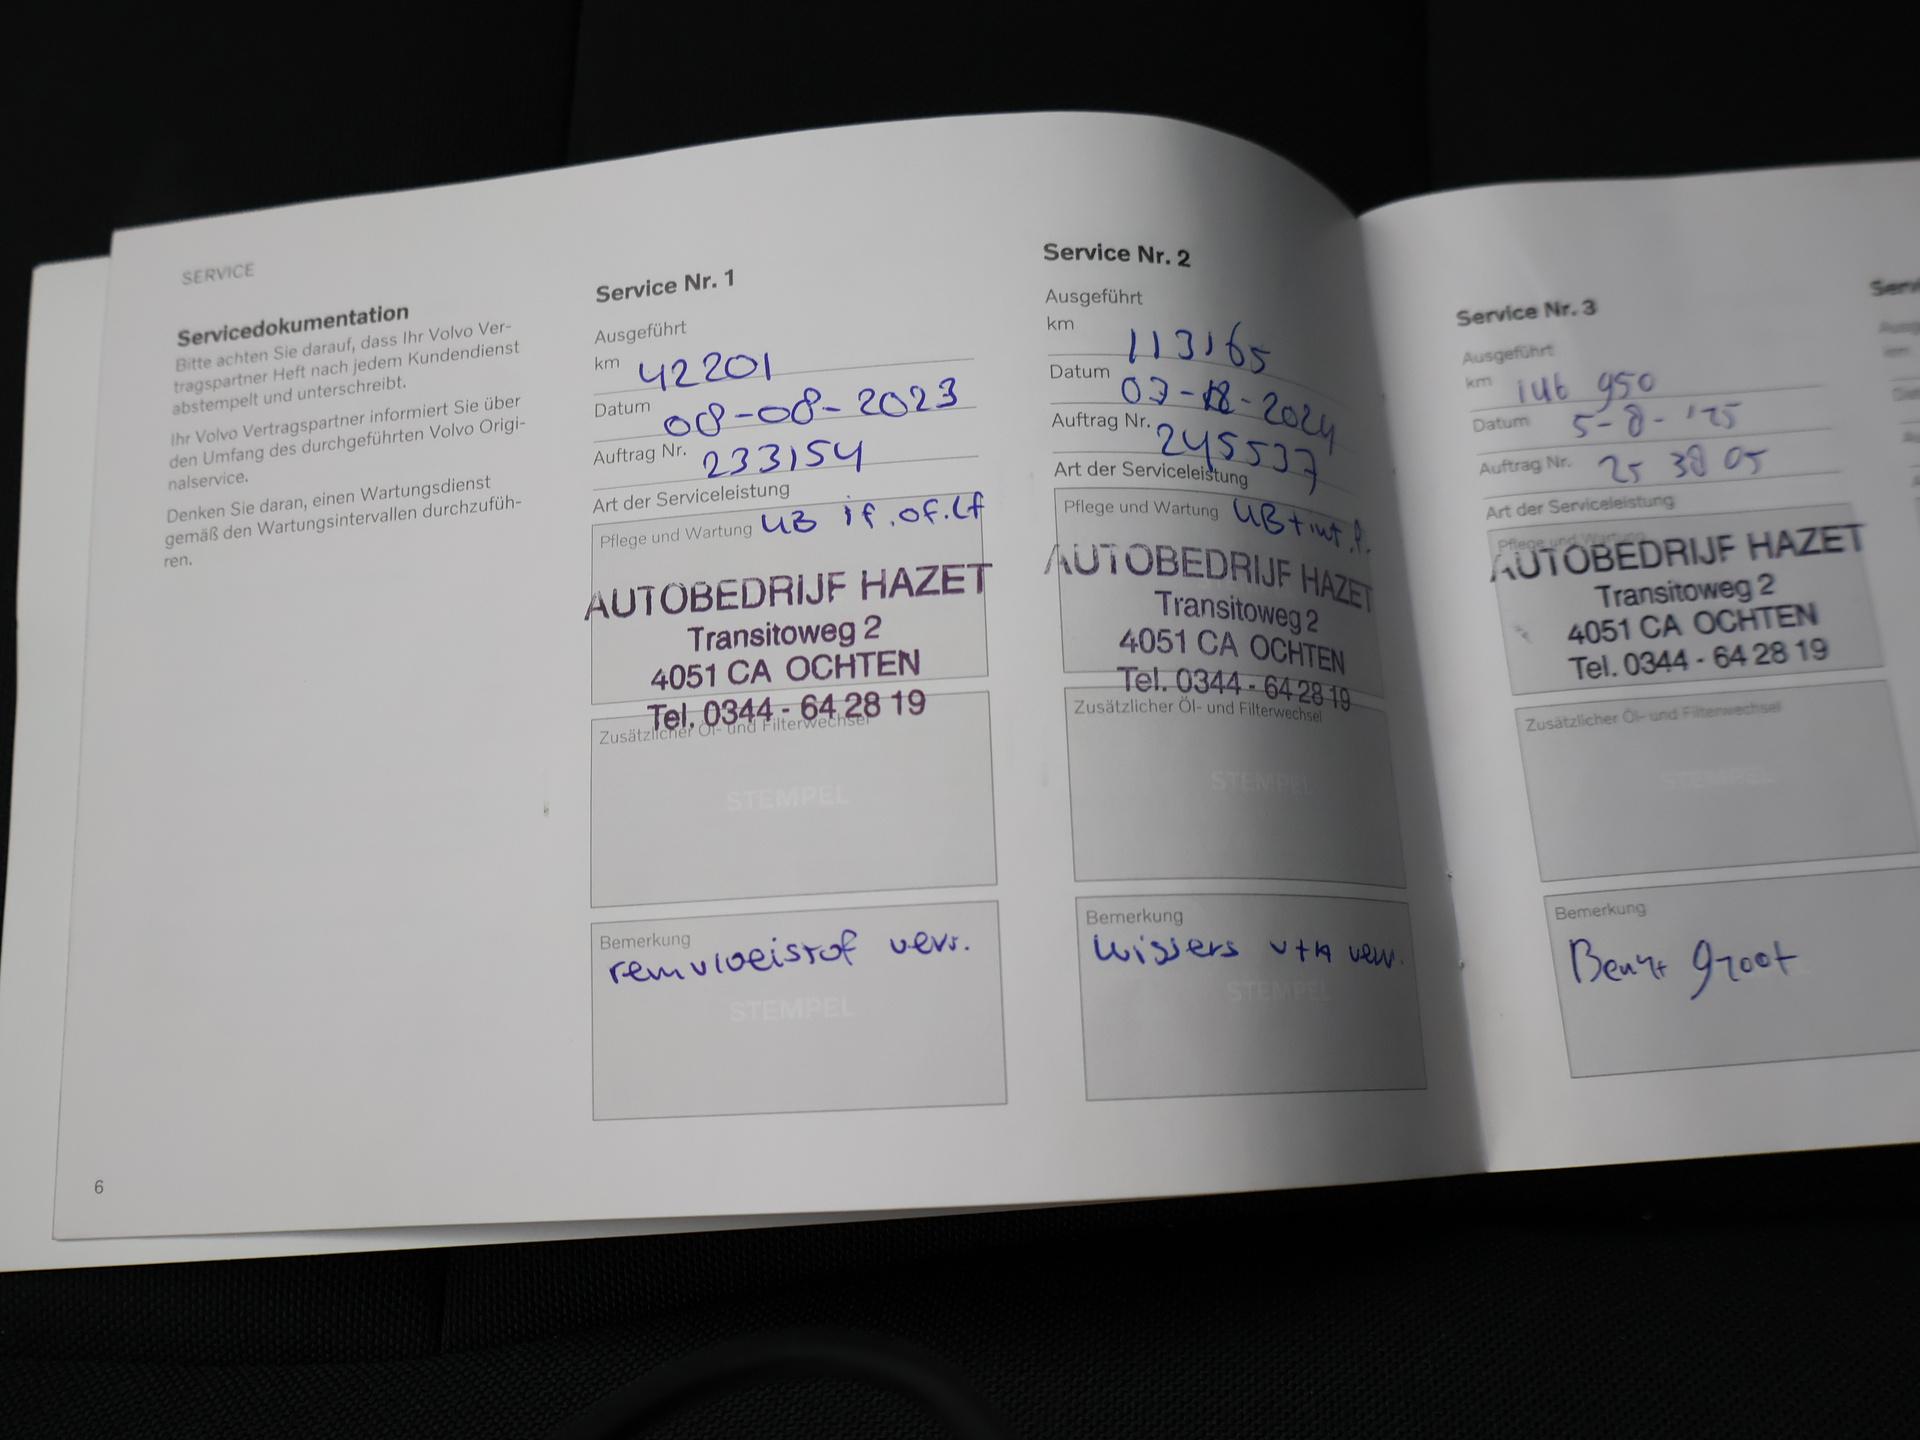 SERVICE
Servicedokumentation
Bitte achten Sie darauf, dass Ihr Volvo Ver-
tragspartner Heft nach jedem Kundendienst
abstempelt und unterschreibt.
Ihr Volvo Vertragspartner informiert Sie über
den Umfang des durchgeführten Volvo Origi-
nalservice.
Denken Sie daran, einen Wartungsdienst
gemäß den Wartungsintervallen durchzufüh-
ren.
6
Service Nr. 1
Ausgeführt
km 42201
Datum 08-08-2023
Auftrag Nr. 233154
Art der Serviceleistung
Pflege und Wartung UB if.of.lf
AUTOBEDRIJF HAZET
Transitoweg 2
4051 CA OCHTEN
Tel. 0344 - 64 28 19
Zusätzlicher Öl- und Filterwechsel
STEMPEL
Bemerkung
remvloeistof verv.
STEMPEL
Service Nr. 2
Ausgeführt
km 113165
Datum
Auftrag Nr. 245537
Art der Serviceleistung
Pflege und Wartung UB + int.f.
AUTOBEDRIJF HAZET
Transitoweg 2
4051 CA OCHTEN
Tel. 0344 - 64 28 19
Zusätzlicher Öl- und Filterwechsel
STEMPEL
Bemerkung
wissers v+A verv.
STEMPEL
Service Nr. 3
Ausgeführt
km 146 950
Datum 5-8-'25
Auftrag Nr. 25 38 05
Art der Serviceleistung
Pflege und Wartung
AUTOBEDRIJF HAZET
Transitoweg 2
4051 CA OCHTEN
Tel. 0344 - 64 28 19
Zusätzlicher Öl- und Filterwechsel
STEMPEL
Bemerkung
Beurt groot